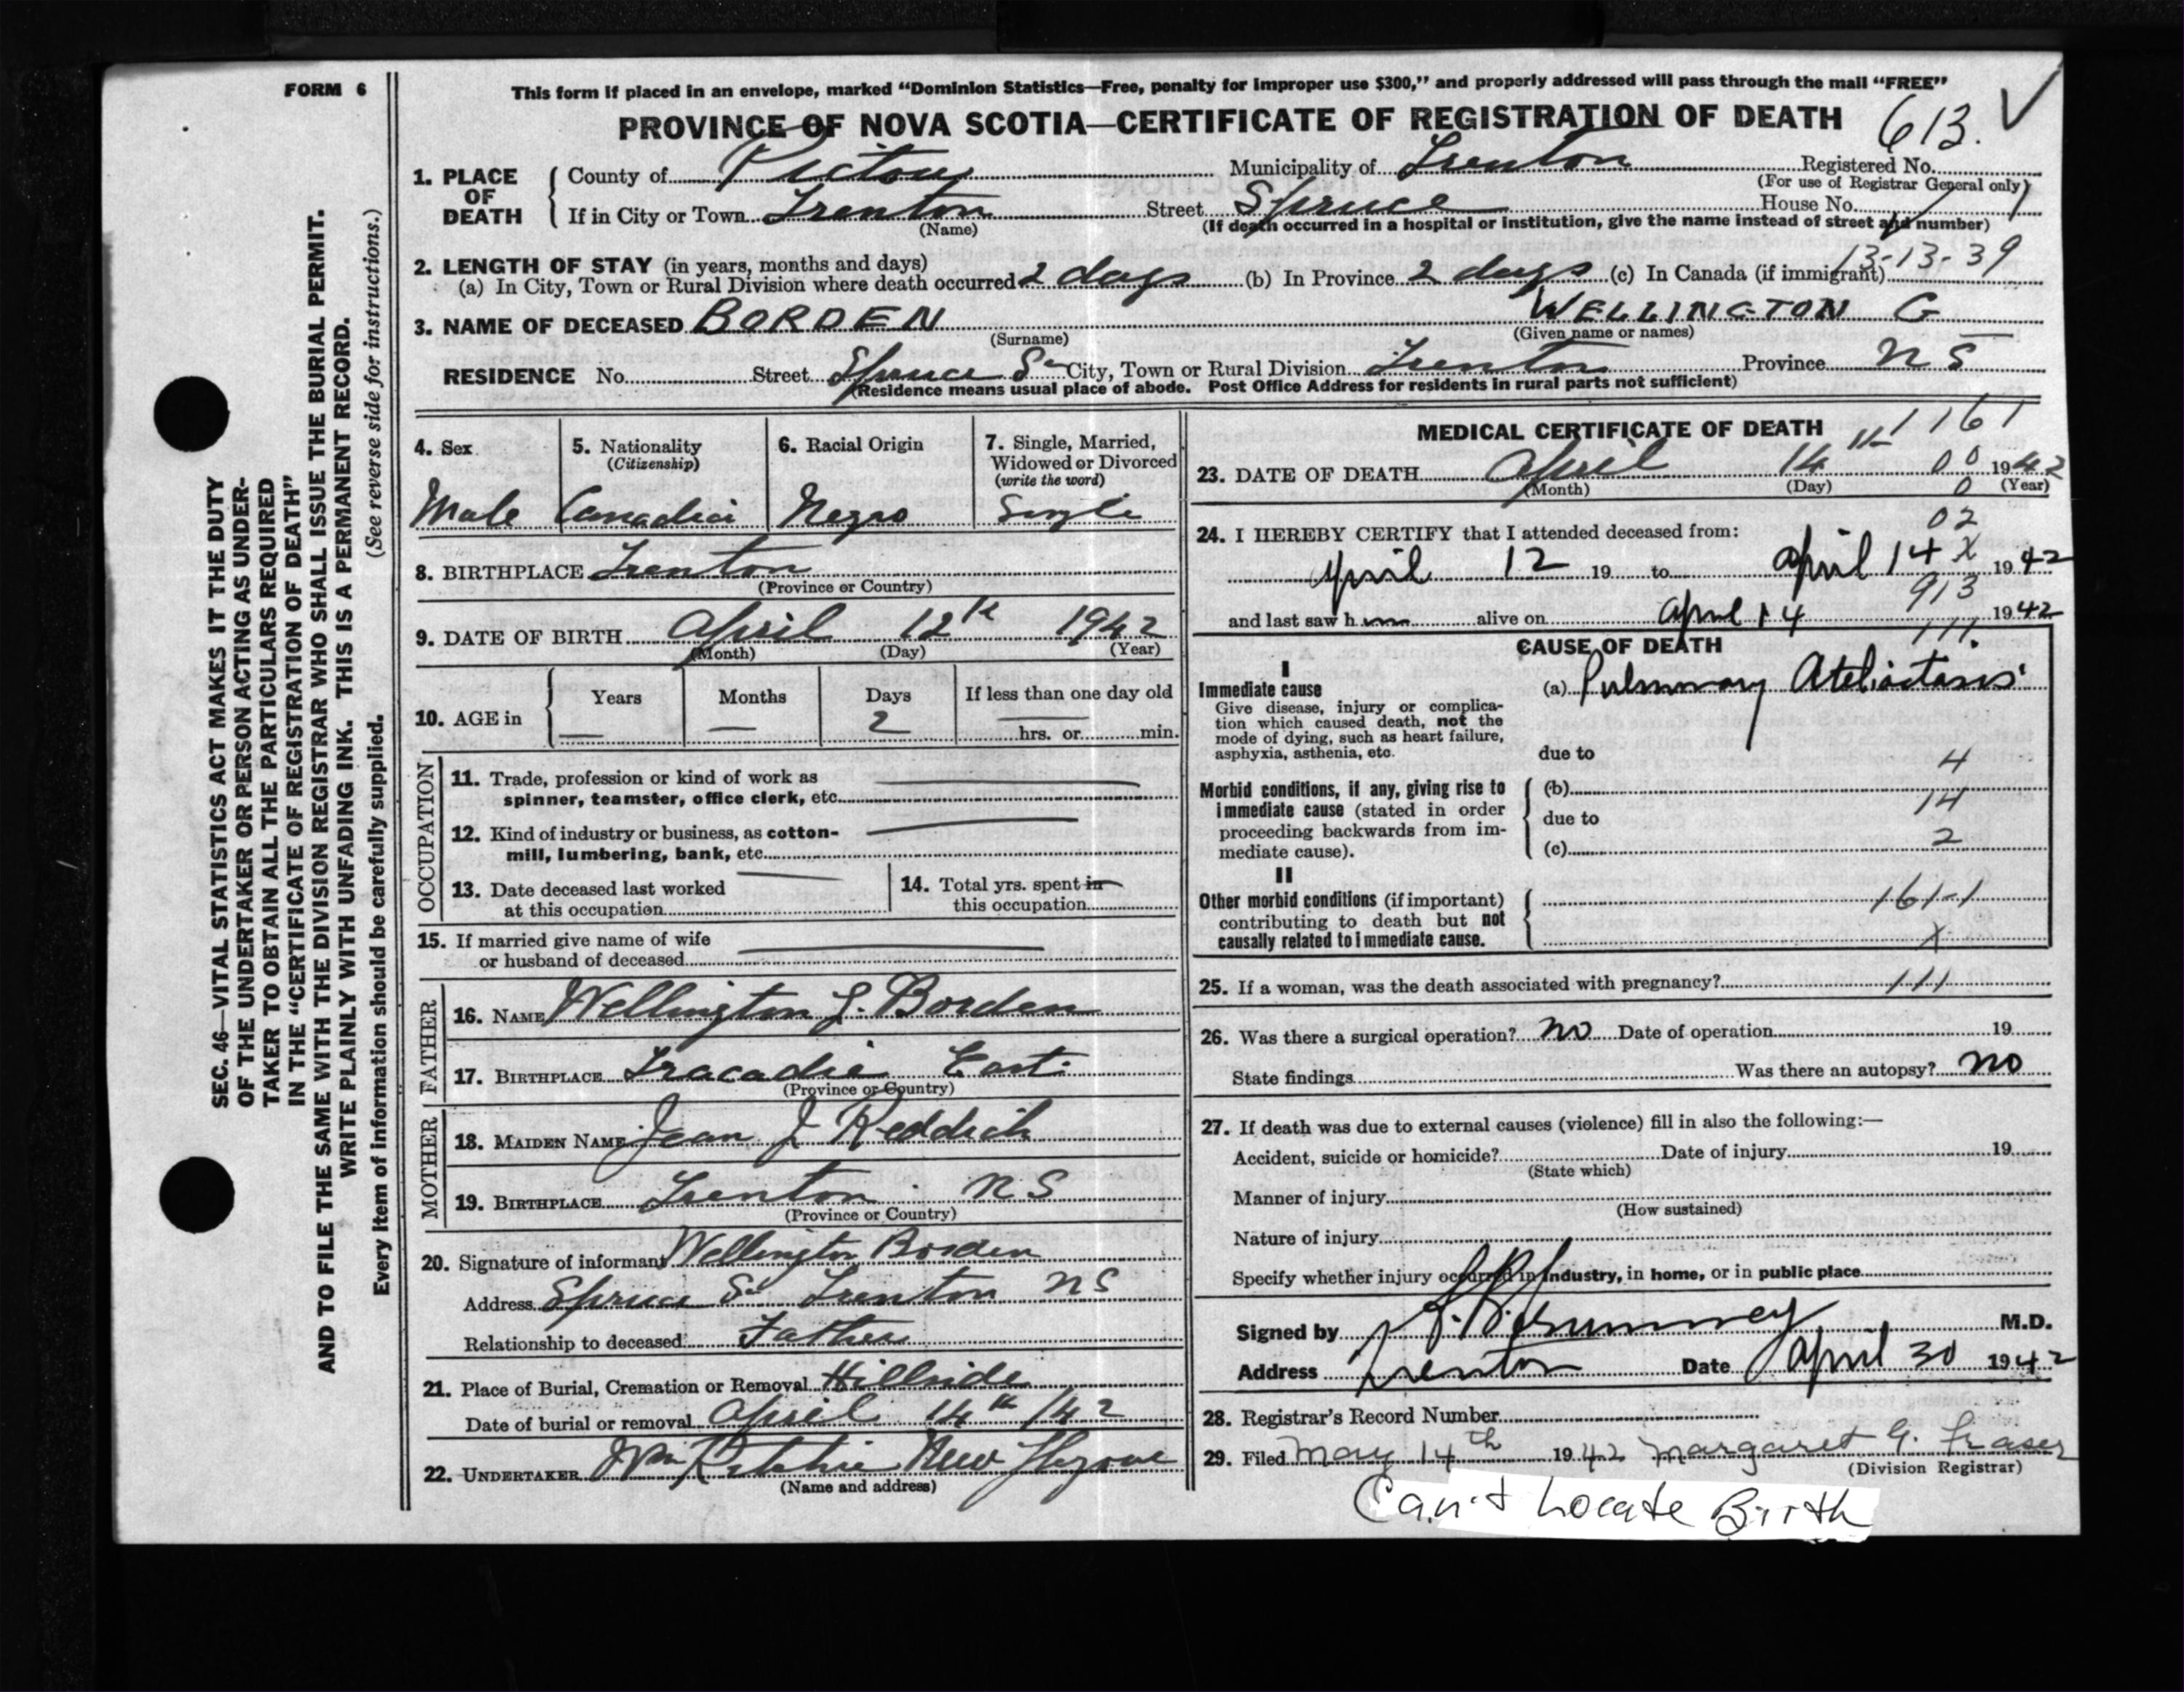 FORM 6
This form if placed in an envelope, marked “Dominion Statistics—Free, penalty for improper use $300,” and properly addressed will pass through the mail “FREE”
PROVINCE OF NOVA SCOTIA—CERTIFICATE OF REGISTRATION OF DEATH
613.
1. PLACE OF DEATH
County of Pictou Municipality of Trenton Registered No.
(For use of Registrar General only)
If in City or Town Trenton Street Spruce House No.
(Name) (If death occurred in a hospital or institution, give the name instead of street and number)
13-13-39
2. LENGTH OF STAY (in years, months and days)
(a) In City, Town or Rural Division where death occurred 2 days (b) In Province 2 days (c) In Canada (if immigrant)
3. NAME OF DECEASED BORDEN WELLINGTON G
(Surname) (Given name or names)
RESIDENCE No. Street Spruce St City, Town or Rural Division Trenton Province NS
(Residence means usual place of abode. Post Office Address for residents in rural parts not sufficient)
4. Sex
Male
5. Nationality
(Citizenship)
Canadian
6. Racial Origin
Negro
7. Single, Married,
Widowed or Divorced
(write the word)
Single
8. BIRTHPLACE Trenton
(Province or Country)
9. DATE OF BIRTH April 12th 1942
(Month) (Day) (Year)
10. AGE in
Years Months Days If less than one day old
— — 2 hrs. or min.
OCCUPATION
11. Trade, profession or kind of work as
spinner, teamster, office clerk, etc.
12. Kind of industry or business, as cotton-
mill, lumbering, bank, etc.
13. Date deceased last worked
at this occupation
14. Total yrs. spent in
this occupation
15. If married give name of wife
or husband of deceased
FATHER
16. NAME Wellington L. Borden
17. BIRTHPLACE Tracadie East
(Province or Country)
MOTHER
18. MAIDEN NAME Jean J Reddick
19. BIRTHPLACE Trenton NS
(Province or Country)
20. Signature of informant Wellington Borden
Address Spruce St Trenton NS
Relationship to deceased Father
21. Place of Burial, Cremation or Removal Hillside
Date of burial or removal April 14th /42
22. UNDERTAKER Wm Ritchie New Glasgow
(Name and address)
MEDICAL CERTIFICATE OF DEATH
1161
23. DATE OF DEATH April 14th 00 1942
(Month) (Day) 0 (Year)
02
24. I HEREBY CERTIFY that I attended deceased from:
April 12 19 to April 14 X 1942
913
and last saw h im alive on April 14 1942
111.
CAUSE OF DEATH
I
Immediate cause
Give disease, injury or complica-
tion which caused death, not the
mode of dying, such as heart failure,
asphyxia, asthenia, etc.
(a) Pulmonary Ateliactasis
due to
4
Morbid conditions, if any, giving rise to
immediate cause (stated in order
proceeding backwards from im-
mediate cause).
(b)
14
due to
2
(c)
II
Other morbid conditions (if important)
contributing to death but not
causally related to immediate cause.
161-1
X
25. If a woman, was the death associated with pregnancy? 111
26. Was there a surgical operation? no Date of operation 19
State findings Was there an autopsy? no
27. If death was due to external causes (violence) fill in also the following:—
Accident, suicide or homicide? Date of injury 19
(State which)
Manner of injury
(How sustained)
Nature of injury
Specify whether injury occurred in industry, in home, or in public place
Signed by M.D.
Address Trenton Date April 30 1942
28. Registrar's Record Number
29. Filed May 14th 1942 Margaret G. Fraser
(Division Registrar)
Can't Locate Birth
SEC. 46—VITAL STATISTICS ACT MAKES IT THE DUTY
OF THE UNDERTAKER OR PERSON ACTING AS UNDER-
TAKER TO OBTAIN ALL THE PARTICULARS REQUIRED
IN THE “CERTIFICATE OF REGISTRATION OF DEATH”
AND TO FILE THE SAME WITH THE DIVISION REGISTRAR WHO SHALL ISSUE THE BURIAL PERMIT.
WRITE PLAINLY WITH UNFADING INK. THIS IS A PERMANENT RECORD.
(See reverse side for instructions.)
Every item of information should be carefully supplied.